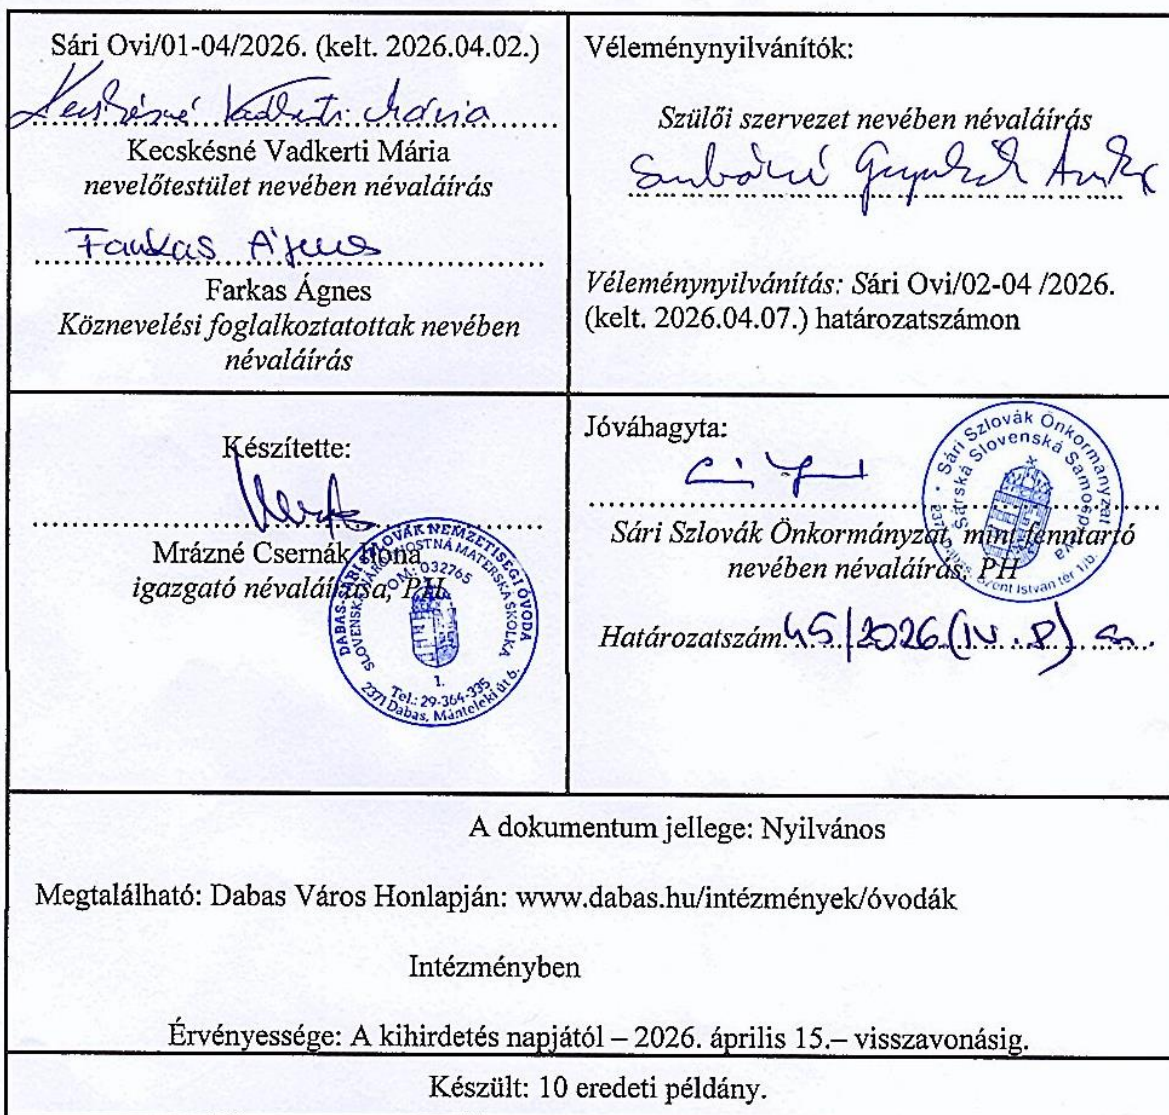 Sári Ovi/01-04/2026. (kelt. 2026.04.02.)
Kecskésné Vadkerti Mária
Kecskésné Vadkerti Mária
nevelőtestület nevében névaláírás
Farkas Ágnes
Farkas Ágnes
Köznevelési foglalkoztatottak nevében
névaláírás
Véleménynyilvánítók:
Szülői szervezet nevében névaláírás
Véleménynyilvánítás: Sári Ovi/02-04 /2026.
(kelt. 2026.04.07.) határozatszámon
Készítette:
Mrázné Csernák Ilona
igazgató névaláírása, PH
DABAS-SÁRI SZLOVÁK NEMZETISÉGI ÓVODA
SLOVENSKÁ NÁRODNOSTNÁ MATERSKÁ ŠKÔLKA
OM: 032765
1.
Tel.: 29-364-335
2371 Dabas, Mánteleki út 6.
Jóváhagyta:
Sári Szlovák Önkormányzat
Šárska Slovenská Samospráva
Szent István tér 1/b.
Sári Szlovák Önkormányzat, mint fenntartó
nevében névaláírás, PH
Határozatszám 45/2026.(IV.8) sz.
A dokumentum jellege: Nyilvános
Megtalálható: Dabas Város Honlapján: www.dabas.hu/intézmények/óvodák
Intézményben
Érvényessége: A kihirdetés napjától – 2026. április 15.– visszavonásig.
Készült: 10 eredeti példány.